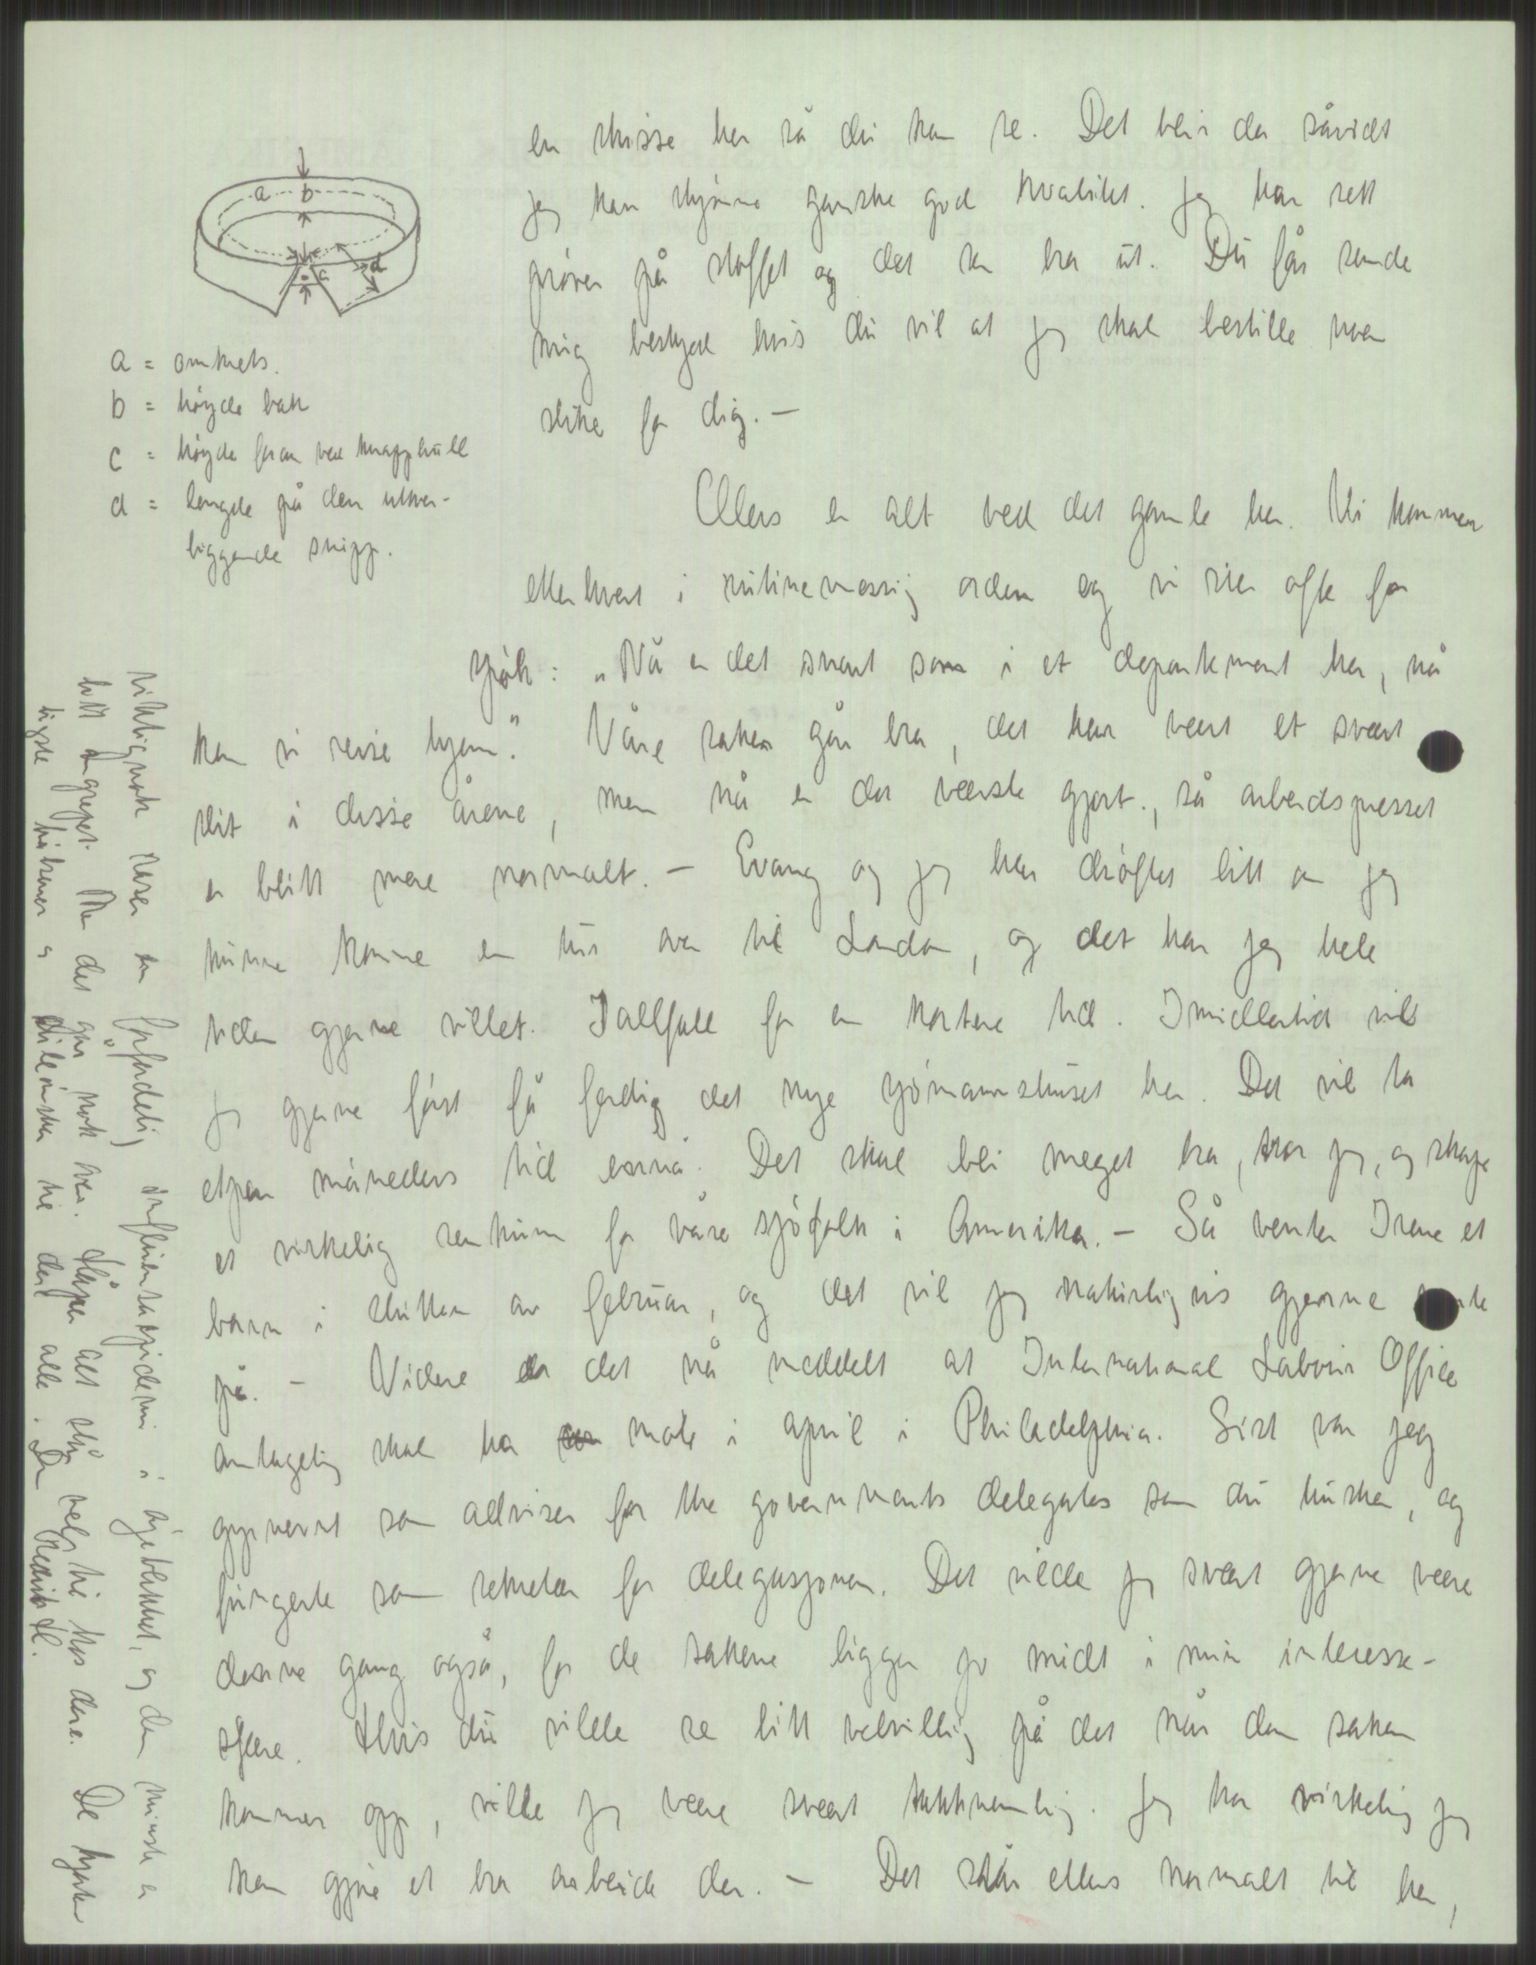 en skisse her så du kan se. Det blir da såvidt
jeg kan skjønne ganske god kvalitet. Jeg har sett
prøver på stoffet og det ser bra ut. Du får sende
mig beskjed hvis du vil at jeg skal bestille noen
slike for dig. —
a b c d
a = omkrets.
b = höyde bak
c = höyde foran ved knapphull
d = lengde på den utover-
liggende snipp.
Ellers er alt ved det gamle her. Vi kommer
etterhvert i rutinemessig orden og vi sier ofte for
spök: „Nå er det snart som i et departement her, nå
kan vi reise hjem." Våre saker går bra, det har vært et svært
slit i disse årene, men nå er det verste gjort, så arbeidspresset
er blitt mere normalt. — Evang og jeg har dröftet litt om jeg
kunne komme en tur over til London, og det har jeg hele
tiden gjerne villet. Iallfall for en kortere tid. Imidlertid vil
jeg gjerne först få ferdig det nye sjömannshuset her. Det vil ta
et par måneders tid ennå. Det skal bli meget bra, tror jeg, og skape
et virkelig sentrum for våre sjöfolk i Amerika. — Så venter Irene et
barn i slutten av februar, og det vil jeg naturligvis gjerne vente
på. — Videre er det nå meddelt at International Labour Office
antagelig skal ha möte i april i Philadelphia. Sist var jeg
oppnevnt som adviser for the governments delegates som du husker, og
fungerte som sekretær for delegasjonen. Det vilde jeg svært gjerne være
denne gang også, for de sakene ligger jo midt i min interesse-
sfære. Hvis du vilde se litt velvillig på det når den saken
kommer opp, vilde jeg være svært takknemlig. Jeg tror virkelig jeg
kan gjöre et bra arbeide der. — Det står ellers normalt til her,
riktignok raser en forferdelig influensaepidemi i öieblikket, og den minste er
litt angrepet. Men det går nok over. Håper alt står vel til hos dere. De hjerte-
ligste hilsener og til dere alle. Din Fredrik H.